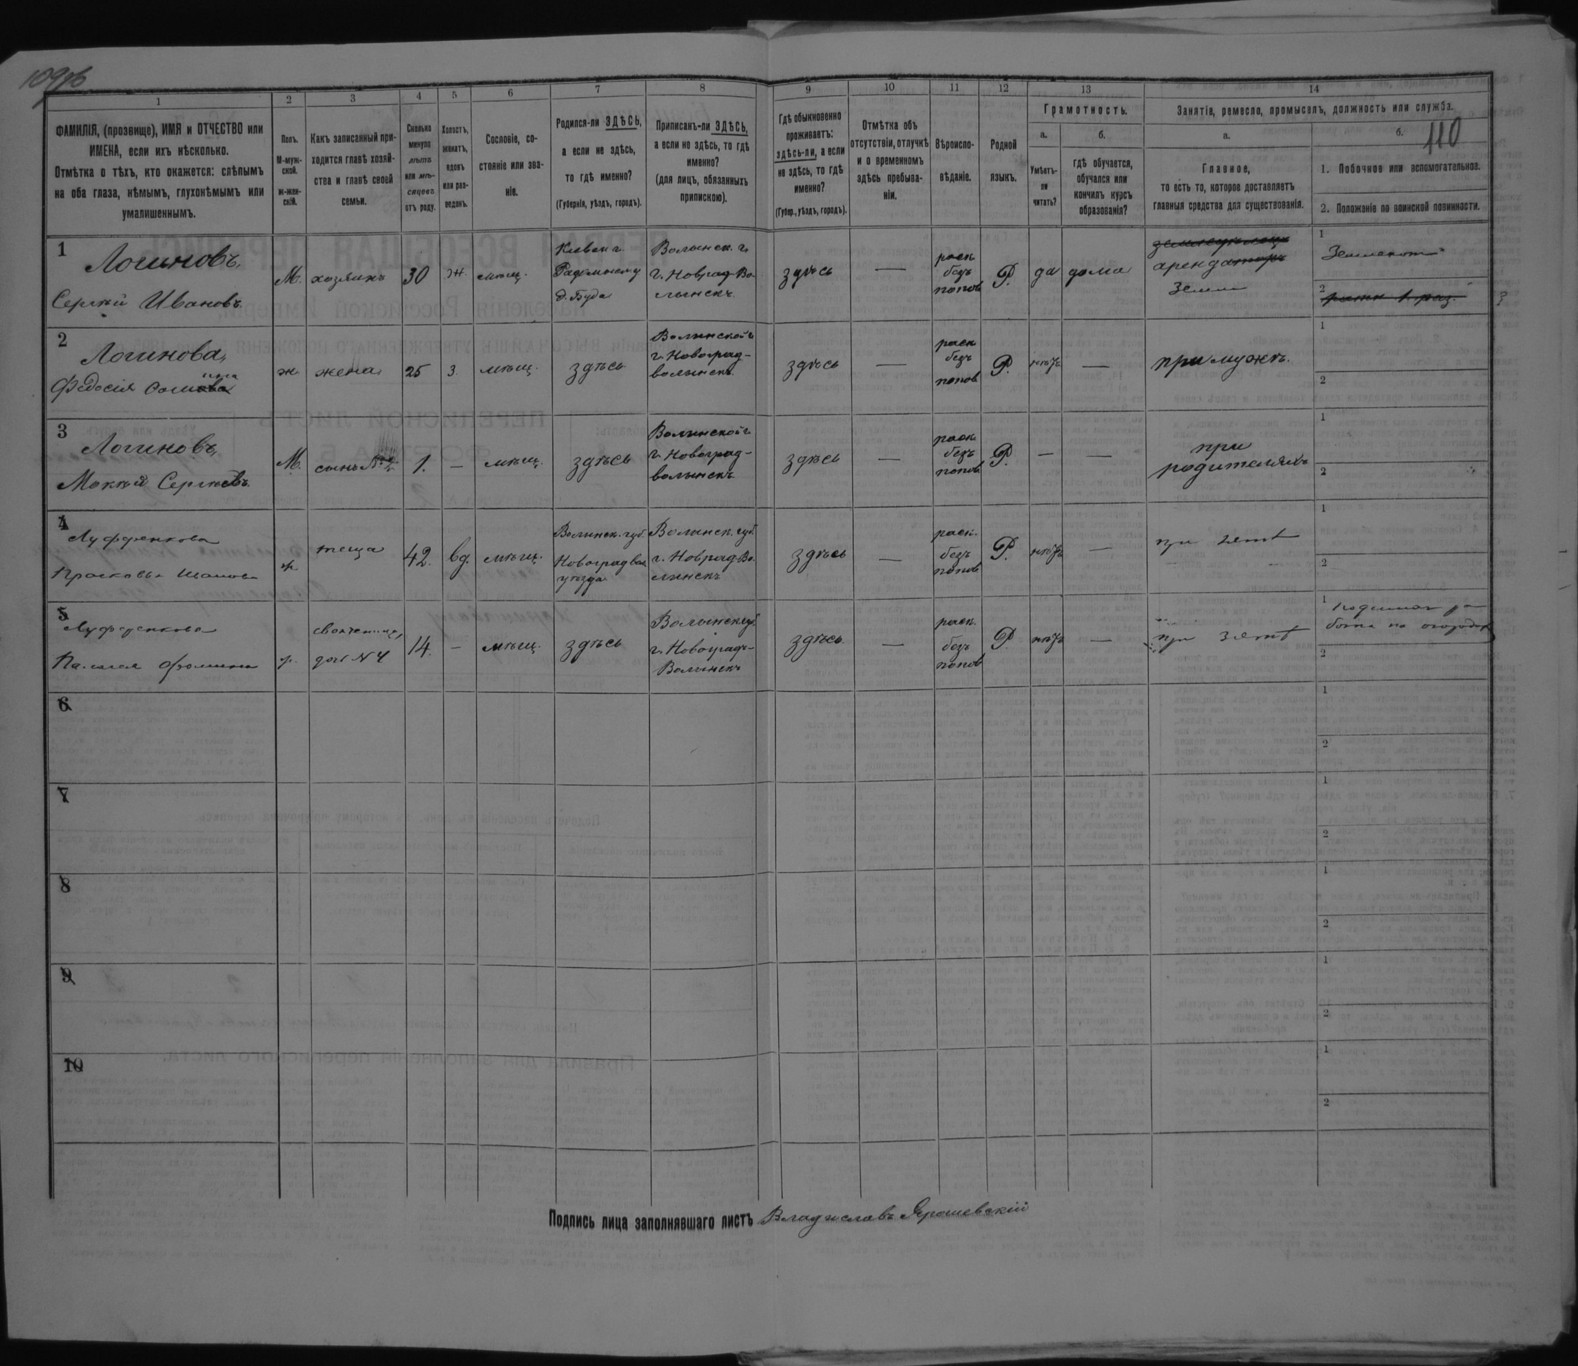 110
1 2 3 4 5 6 7 8 9 10 11 12 13 14
ФАМИЛІЯ, (прозвище), ИМЯ и ОТЧЕСТВО или
ИМЕНА, если ихъ нѣсколько.
Отмѣтка о тѣхъ, кто окажется: слѣпымъ
на оба глаза, нѣмымъ, глухонѣмымъ или
умалишеннымъ.
Полъ.
М-муж-
ской.
ж-жен-
скій.
Какъ записанный при-
ходится главѣ хозяй-
ства и главѣ своей
семьи.
Сколько
минуло
лѣтъ
или мѣ-
сяцевъ
отъ роду.
Холостъ,
женатъ,
вдовъ
или раз-
веденъ.
Сословіе, со-
стояніе или зва-
ніе.
Родился-ли ЗДѢСЬ,
а если не здѣсь,
то гдѣ именно?
(Губернія, уѣздъ, городъ).
Приписанъ-ли ЗДѢСЬ,
а если не здѣсь, то гдѣ
именно?
(для лицъ, обязанныхъ
припискою).
Гдѣ обыкновенно
проживаетъ:
здѣсь-ли, а если
не здѣсь, то гдѣ
именно?
(Губер., уѣздъ, городъ).
Отмѣтка объ
отсутствіи, отлучкѣ
и о временномъ
здѣсь пребыва-
ніи.
Вѣроиспо-
вѣданіе.
Родной
языкъ.
Грамотность.
а.
Умѣетъ-
ли
читать?
б.
гдѣ обучается,
обучался или
кончилъ курсъ
образованія?
Занятіе, ремесло, промыселъ, должность или служба.
а.
Главное,
то есть то, которое доставляетъ
главныя средства для существованія.
б.
1. Побочное или вспомогательное.
2. Положеніе по воинской повинности.
1
Логиновъ
Сергѣй Ивановъ
М. хозяинъ 30 ж мѣщ.
Кіевск г.
д. Буда
Волынск. г.
г. Новград-Во-
лынскъ
здѣсь —
раск.
безъ
попов
Р. да дома
арендаторъ
земли
1
2
?
2
Логинова,
Федосія
ж жена 25 з. мѣщ. здѣсь
Волынской
г. Новоград-
волынскъ
здѣсь —
раск
безъ
попов
Р. нѣтъ —
при мужѣ.
1
2
3
Логиновъ
Мокій Сергѣевъ
М. сынъ 1. — мѣщ. здѣсь
Волынской
г. Новоград-
волынскъ
здѣсь —
раск
безъ
попов
Р. — —
при
родителяхъ
1
2
4
теща 42. вд. мѣщ.
Волынск. губ.
Новоградвол
уѣзда
Волынск. губ
г. Новград-Во
лынскъ
здѣсь —
раск.
безъ
попов
Р. нѣтъ —
при зятѣ
1
2
5
свояченица,
доч N4
14. — мѣщ. здѣсь
Волынск губ
г. Новоградъ-
Волынскъ
здѣсь —
раск.
безъ
попов
Р нѣтъ —
при зятѣ
1
2
6
1
2
7
1
2
8
1
2
9
1
2
10
1
2
Подпись лица заполнявшаго листъ Владиславъ Ярошевскій